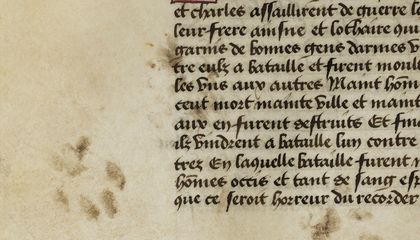 et charles assaillirent de guerre le
leur frere ainsne et lothaire qui
garnis de bonnes gens darmes v
tre eulz a bataille et firent moult
les vns aux autres Maint hom
ceut mort mainte ville et maint
aux en furent destruits Et fin
ilz vindrent a bataille lun contre
trez En laquelle bataille furent
hommes occis et tant de sang esp
que ce seroit horreur du recorder